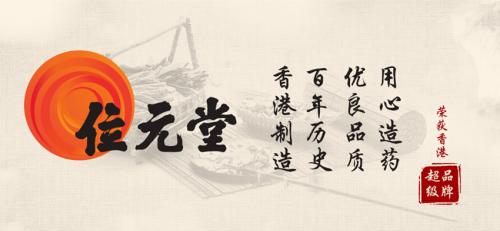 位元堂
用心造药
优良品质
百年历史
香港制造
荣获香港
超级
品牌